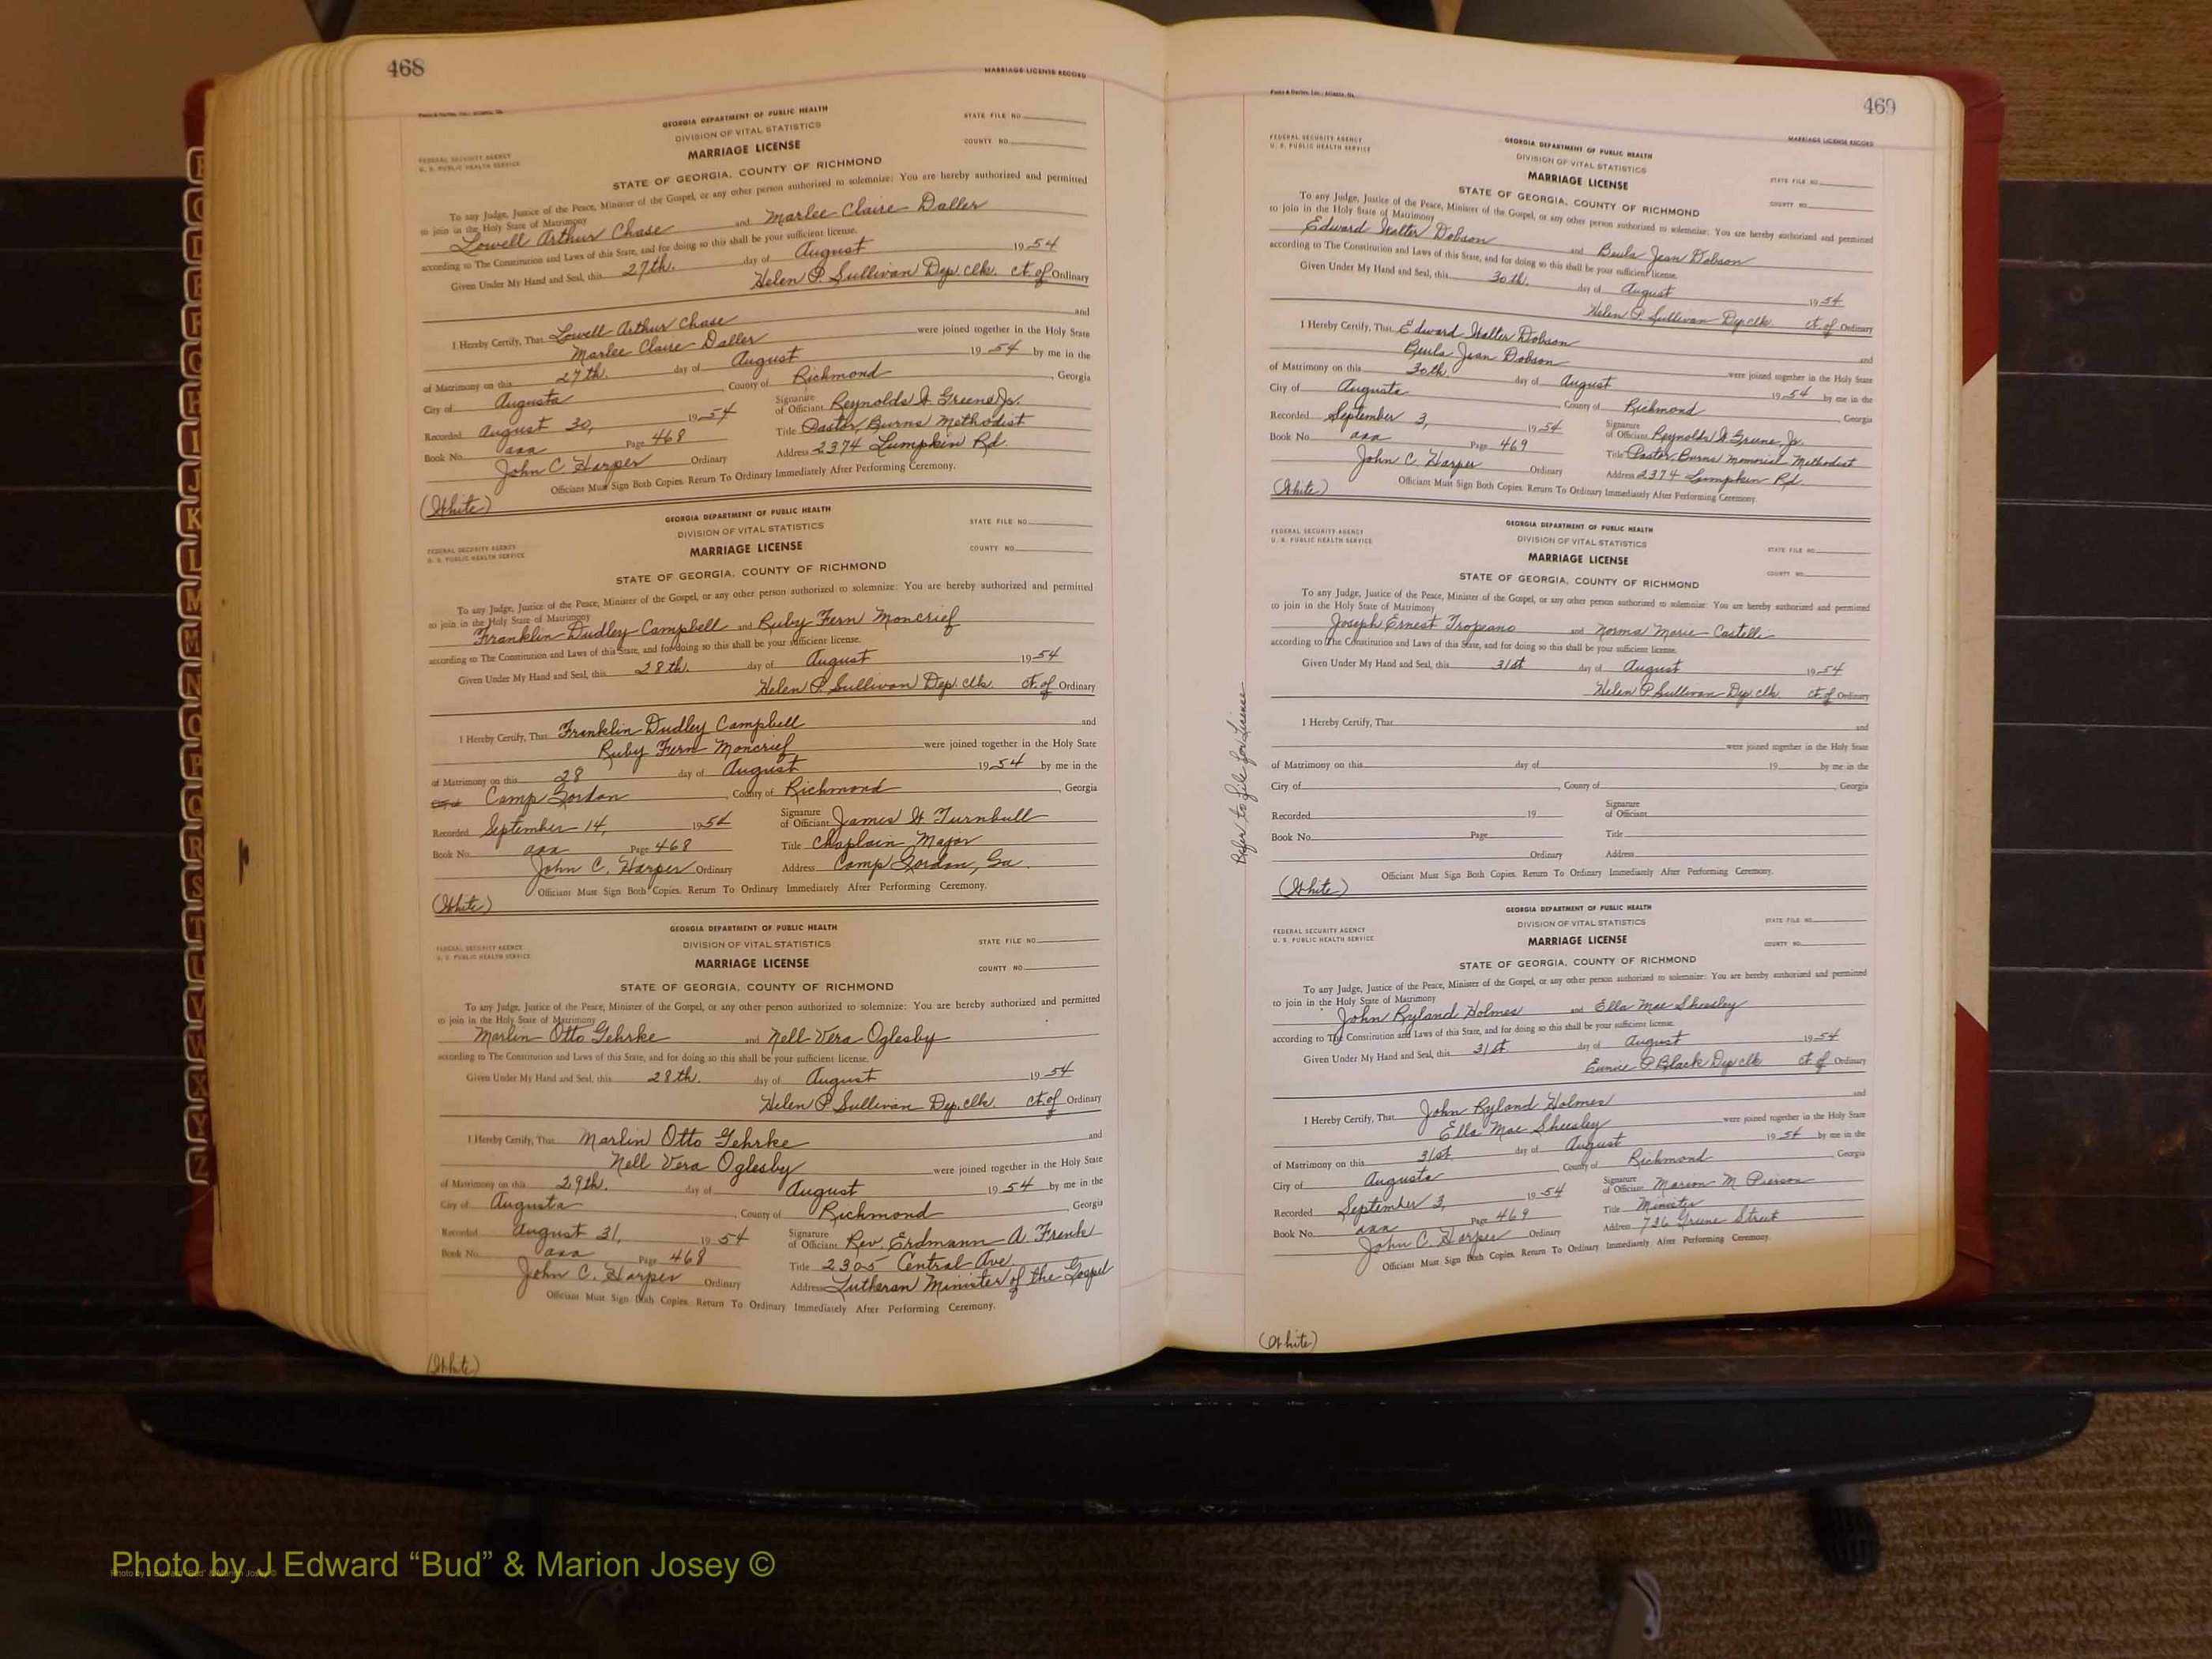 468
MARRIAGE LICENSE RECORD
GEORGIA DEPARTMENT OF PUBLIC HEALTH
DIVISION OF VITAL STATISTICS
STATE FILE NO.
COUNTY NO.
FEDERAL SECURITY AGENCY
U. S. PUBLIC HEALTH SERVICE
MARRIAGE LICENSE
STATE OF GEORGIA, COUNTY OF RICHMOND
To any Judge, Justice of the Peace, Minister of the Gospel, or any other person authorized to solemnize: You are hereby authorized and permitted
to join in the Holy State of Matrimony
Lowell Arthur Chase and Marlee Claire Daller
according to The Constitution and Laws of this State, and for doing so this shall be your sufficient license.
Given Under My Hand and Seal, this 27th. day of August 1954
Helen P. Sullivan Dep. clk. ct. of Ordinary
I Hereby Certify, That Lowell Arthur Chase and
Marlee Claire Daller were joined together in the Holy State
of Matrimony on this 27th. day of August 1954 by me in the
City of Augusta, County of Richmond, Georgia
Recorded August 30, 1954
Signature of Officiant Reynolds W. Greene Jr.
Book No. aaa Page 468
Title Pastor, Burns Methodist
John C. Harper Ordinary
Address 2374 Lumpkin Rd.
Officiant Must Sign Both Copies. Return To Ordinary Immediately After Performing Ceremony.
(White)
GEORGIA DEPARTMENT OF PUBLIC HEALTH
DIVISION OF VITAL STATISTICS
STATE FILE NO.
COUNTY NO.
FEDERAL SECURITY AGENCY
U. S. PUBLIC HEALTH SERVICE
MARRIAGE LICENSE
STATE OF GEORGIA, COUNTY OF RICHMOND
To any Judge, Justice of the Peace, Minister of the Gospel, or any other person authorized to solemnize: You are hereby authorized and permitted
to join in the Holy State of Matrimony
Franklin Dudley Campbell and Ruby Fern Moncrief
according to The Constitution and Laws of this State, and for doing so this shall be your sufficient license.
Given Under My Hand and Seal, this 28th. day of August 1954
Helen P. Sullivan Dep. clk. ct. of Ordinary
I Hereby Certify, That Franklin Dudley Campbell and
Ruby Fern Moncrief were joined together in the Holy State
of Matrimony on this 28 day of August 1954 by me in the
City of Camp Gordon, County of Richmond, Georgia
Recorded September 14, 1954
Signature of Officiant James W. Turnbull
Book No. aaa Page 468
Title Chaplain Major
John C. Harper Ordinary
Address Camp Gordon, Ga.
Officiant Must Sign Both Copies. Return To Ordinary Immediately After Performing Ceremony.
(White)
GEORGIA DEPARTMENT OF PUBLIC HEALTH
DIVISION OF VITAL STATISTICS
STATE FILE NO.
COUNTY NO.
FEDERAL SECURITY AGENCY
U. S. PUBLIC HEALTH SERVICE
MARRIAGE LICENSE
STATE OF GEORGIA, COUNTY OF RICHMOND
To any Judge, Justice of the Peace, Minister of the Gospel, or any other person authorized to solemnize: You are hereby authorized and permitted
to join in the Holy State of Matrimony
Marlin Otto Gehrke and Nell Vera Oglesby
according to The Constitution and Laws of this State, and for doing so this shall be your sufficient license.
Given Under My Hand and Seal, this 28th. day of August 1954
Helen P. Sullivan Dep. clk. ct. of Ordinary
I Hereby Certify, That Marlin Otto Gehrke and
Nell Vera Oglesby were joined together in the Holy State
of Matrimony on this 29th. day of August 1954 by me in the
City of Augusta, County of Richmond, Georgia
Recorded August 31, 1954
Signature of Officiant Rev. Erdmann A. Frenk
Book No. aaa Page 468
Title 2305 Central Ave.
John C. Harper Ordinary
Address Lutheran Minister of the Gospel
Officiant Must Sign Both Copies. Return To Ordinary Immediately After Performing Ceremony.
(White)
469
MARRIAGE LICENSE RECORD
GEORGIA DEPARTMENT OF PUBLIC HEALTH
DIVISION OF VITAL STATISTICS
FEDERAL SECURITY AGENCY
U. S. PUBLIC HEALTH SERVICE
MARRIAGE LICENSE
STATE FILE NO.
COUNTY NO.
STATE OF GEORGIA, COUNTY OF RICHMOND
To any Judge, Justice of the Peace, Minister of the Gospel, or any other person authorized to solemnize: You are hereby authorized and permitted
to join in the Holy State of Matrimony
Edward Walter Dobson and Beula Jean Dobson
according to The Constitution and Laws of this State, and for doing so this shall be your sufficient license.
Given Under My Hand and Seal, this 30th. day of August 1954
Helen P. Sullivan Dep clk. ct. of Ordinary
I Hereby Certify, That Edward Walter Dobson and
Beula Jean Dobson were joined together in the Holy State
of Matrimony on this 30th. day of August 1954 by me in the
City of Augusta, County of Richmond, Georgia
Recorded September 3, 1954
Signature of Officiant Reynolds W. Greene, Jr.
Book No. aaa Page 469
Title Pastor, Burns Memorial Methodist
John C. Harper Ordinary
Address 2374 Lumpkin Rd.
Officiant Must Sign Both Copies. Return To Ordinary Immediately After Performing Ceremony.
(White)
GEORGIA DEPARTMENT OF PUBLIC HEALTH
DIVISION OF VITAL STATISTICS
FEDERAL SECURITY AGENCY
U. S. PUBLIC HEALTH SERVICE
MARRIAGE LICENSE
STATE FILE NO.
COUNTY NO.
STATE OF GEORGIA, COUNTY OF RICHMOND
To any Judge, Justice of the Peace, Minister of the Gospel, or any other person authorized to solemnize: You are hereby authorized and permitted
to join in the Holy State of Matrimony
Joseph Ernest Tropeano and Norma Marie Castelli
according to The Constitution and Laws of this State, and for doing so this shall be your sufficient license.
Given Under My Hand and Seal, this 31st day of August 1954
Helen P. Sullivan Dep. clk. ct. of Ordinary
I Hereby Certify, That and
were joined together in the Holy State
of Matrimony on this day of 19 by me in the
City of , County of , Georgia
Recorded 19
Signature of Officiant
Book No. Page
Title
Ordinary
Address
Officiant Must Sign Both Copies. Return To Ordinary Immediately After Performing Ceremony.
Refer to file for License
(White)
GEORGIA DEPARTMENT OF PUBLIC HEALTH
DIVISION OF VITAL STATISTICS
FEDERAL SECURITY AGENCY
U. S. PUBLIC HEALTH SERVICE
MARRIAGE LICENSE
STATE FILE NO.
COUNTY NO.
STATE OF GEORGIA, COUNTY OF RICHMOND
To any Judge, Justice of the Peace, Minister of the Gospel, or any other person authorized to solemnize: You are hereby authorized and permitted
to join in the Holy State of Matrimony
John Ryland Holmes and Ella Mae Sheesley
according to The Constitution and Laws of this State, and for doing so this shall be your sufficient license.
Given Under My Hand and Seal, this 31st. day of August 1954
Eunice P. Black Dep clk ct. of Ordinary
I Hereby Certify, That John Ryland Holmes and
Ella Mae Sheesley were joined together in the Holy State
of Matrimony on this 31st. day of August 1954 by me in the
City of Augusta, County of Richmond, Georgia
Recorded September 3, 1954
Signature of Officiant Marion M. Pierson
Book No. aaa Page 469
Title Minister
John C. Harper Ordinary
Address 736 Greene Street
Officiant Must Sign Both Copies. Return To Ordinary Immediately After Performing Ceremony.
(White)
Photo by J Edward “Bud” & Marion Josey ©
Photo by J Edward “Bud” & Marion Josey ©